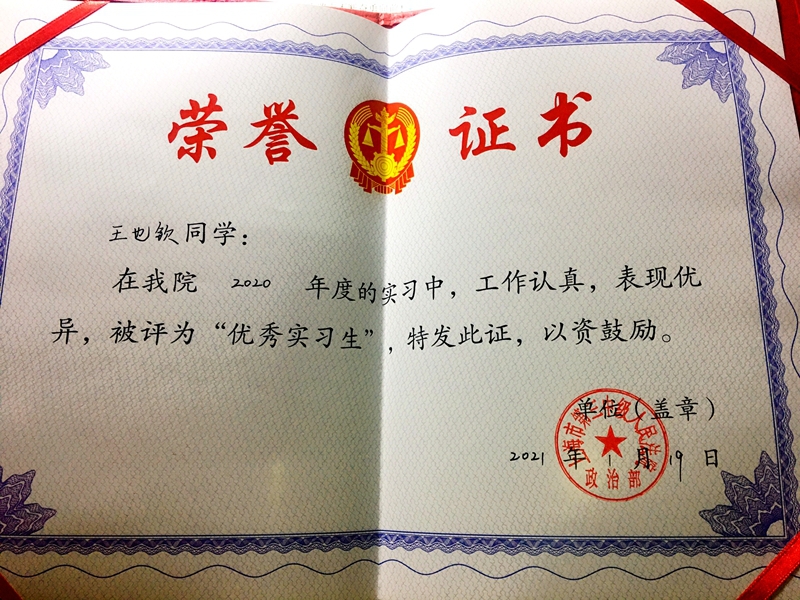 荣誉证书
王也钦同学：
在我院 2020 年度的实习中，工作认真，表现优
异，被评为“优秀实习生”，特发此证，以资鼓励。
单位（盖章）
上海市第三中级人民法院
政治部
2021 年 1 月 19 日